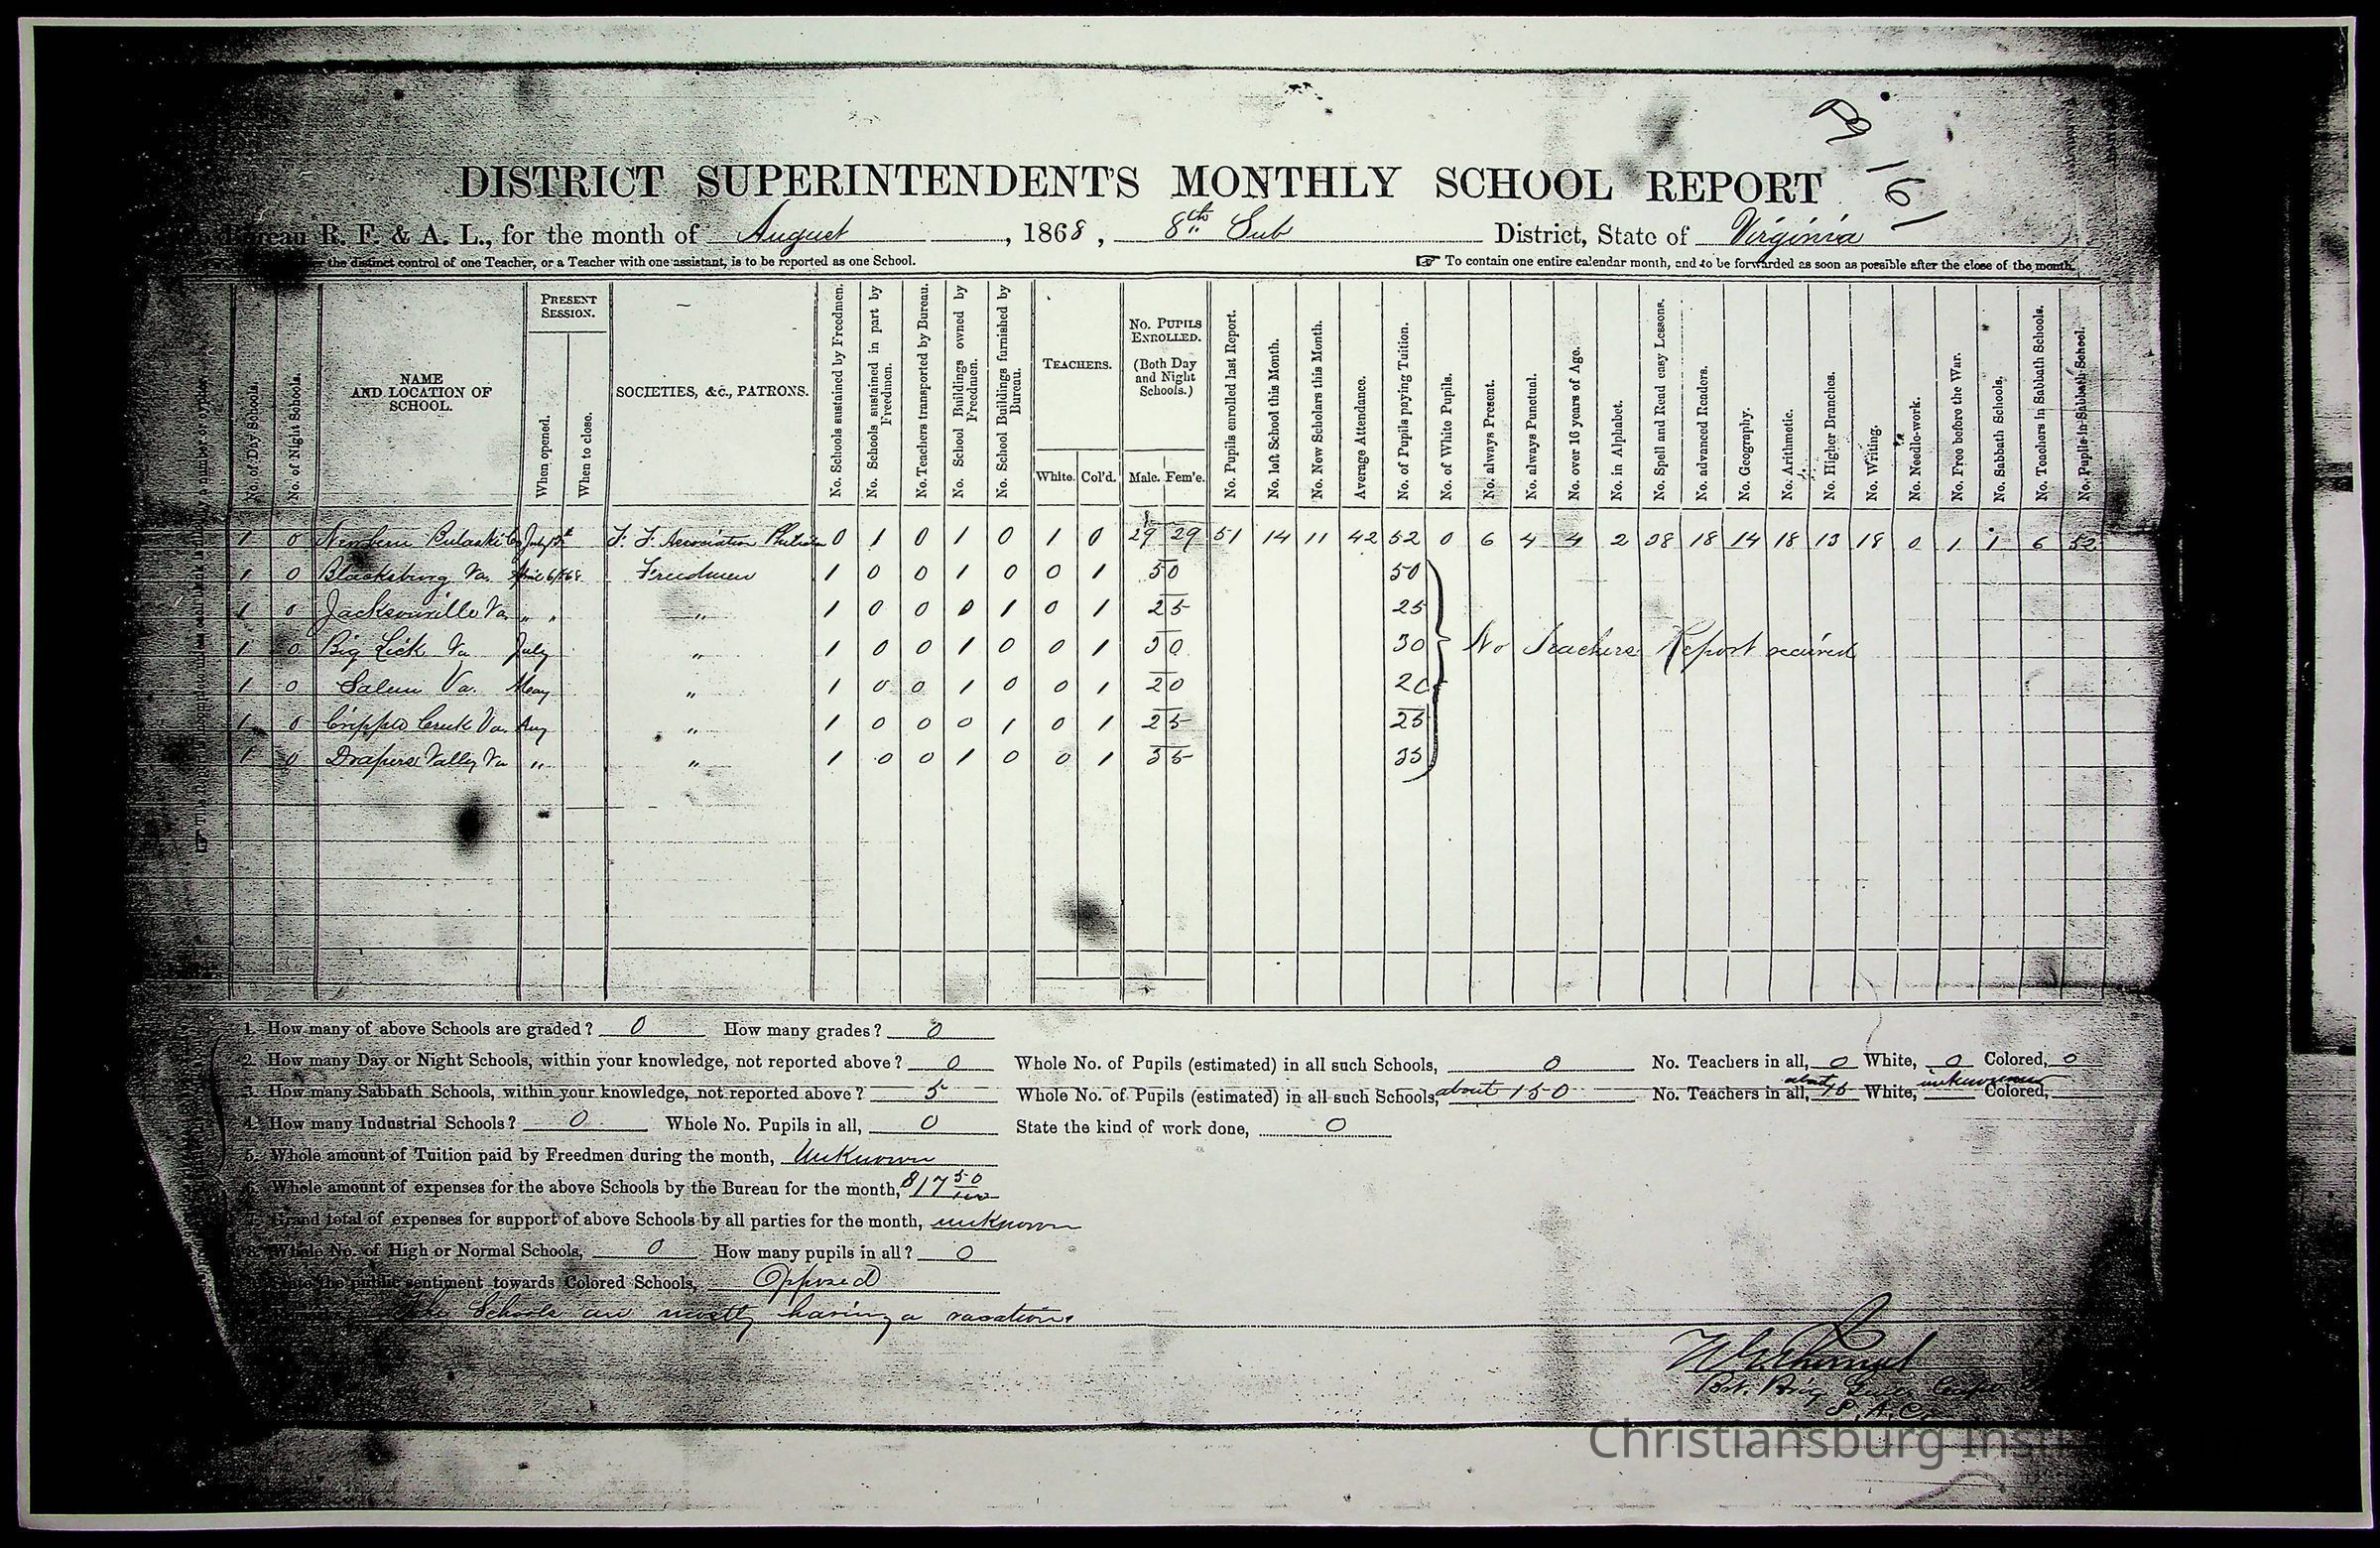 Pg 161
DISTRICT SUPERINTENDENT'S MONTHLY SCHOOL REPORT
Bureau R. F. & A. L., for the month of August, 1868, 8th Sub District, State of Virginia
the distinct control of one Teacher, or a Teacher with one assistant, is to be reported as one School. ☞ To contain one entire calendar month, and to be forwarded as soon as possible after the close of the month.
No. of Day Schools. No. of Night Schools. NAME AND LOCATION OF SCHOOL. PRESENT SESSION. When opened. When to close. SOCIETIES, &c., PATRONS. No. Schools sustained by Freedmen. No. Schools sustained in part by Freedmen. No. Teachers transported by Bureau. No. School Buildings owned by Freedmen. No. School Buildings furnished by Bureau. TEACHERS. White. Col'd. No. PUPILS ENROLLED. (Both Day and Night Schools.) Male. Fem'e. No. Pupils enrolled last Report. No. left School this Month. No. New Scholars this Month. Average Attendance. No. of Pupils paying Tuition. No. of White Pupils. No. always Present. No. always Punctual. No. over 16 years of Age. No. in Alphabet. No. Spell and Read easy Lessons. No. advanced Readers. No. Geography. No. Arithmetic. No. Higher Branches. No. Writing. No. Needle-work. No. Free before the War. No. Sabbath Schools. No. Teachers in Sabbath Schools. No. Pupils in Sabbath School.
1 0 Newbern Pulaski Co July F. F. Association 0 1 0 1 0 1 0 29 29 51 14 11 42 52 0 6 4 4 2 38 18 14 18 13 18 0 1 1 6 52
1 0 Blacksburg Va. Freedmen 1 0 0 1 0 0 1 50 50
1 0 Jacksonville Va " " " 1 0 0 0 1 0 1 25 25
1 0 Big Lick Va July " 1 0 0 1 0 0 1 30 30 No Teachers Report received
1 0 Salem Va. May " 1 0 0 1 0 0 1 20 20
1 0 Cripple Creek Va. Aug " 1 0 0 0 1 0 1 25 25
1 0 Drapers Valley Va " " 1 0 0 1 0 0 1 35 35
1. How many of above Schools are graded? 0 How many grades? 0
2. How many Day or Night Schools, within your knowledge, not reported above? 0 Whole No. of Pupils (estimated) in all such Schools, 0 No. Teachers in all, 0 White, 0 Colored, 0
3. How many Sabbath Schools, within your knowledge, not reported above? 5 Whole No. of Pupils (estimated) in all such Schools, about 150 No. Teachers in all, about 15 White, unknown Colored,
4. How many Industrial Schools? 0 Whole No. Pupils in all, 0 State the kind of work done, 0
5. Whole amount of Tuition paid by Freedmen during the month, Unknown
6. Whole amount of expenses for the above Schools by the Bureau for the month, $17 50/100
7. Grand total of expenses for support of above Schools by all parties for the month, unknown
8. Whole No. of High or Normal Schools, 0 How many pupils in all? 0
State the public sentiment towards Colored Schools, Opposed
The Schools are mostly having a vacation.
S. A. C.
Christiansburg Insti